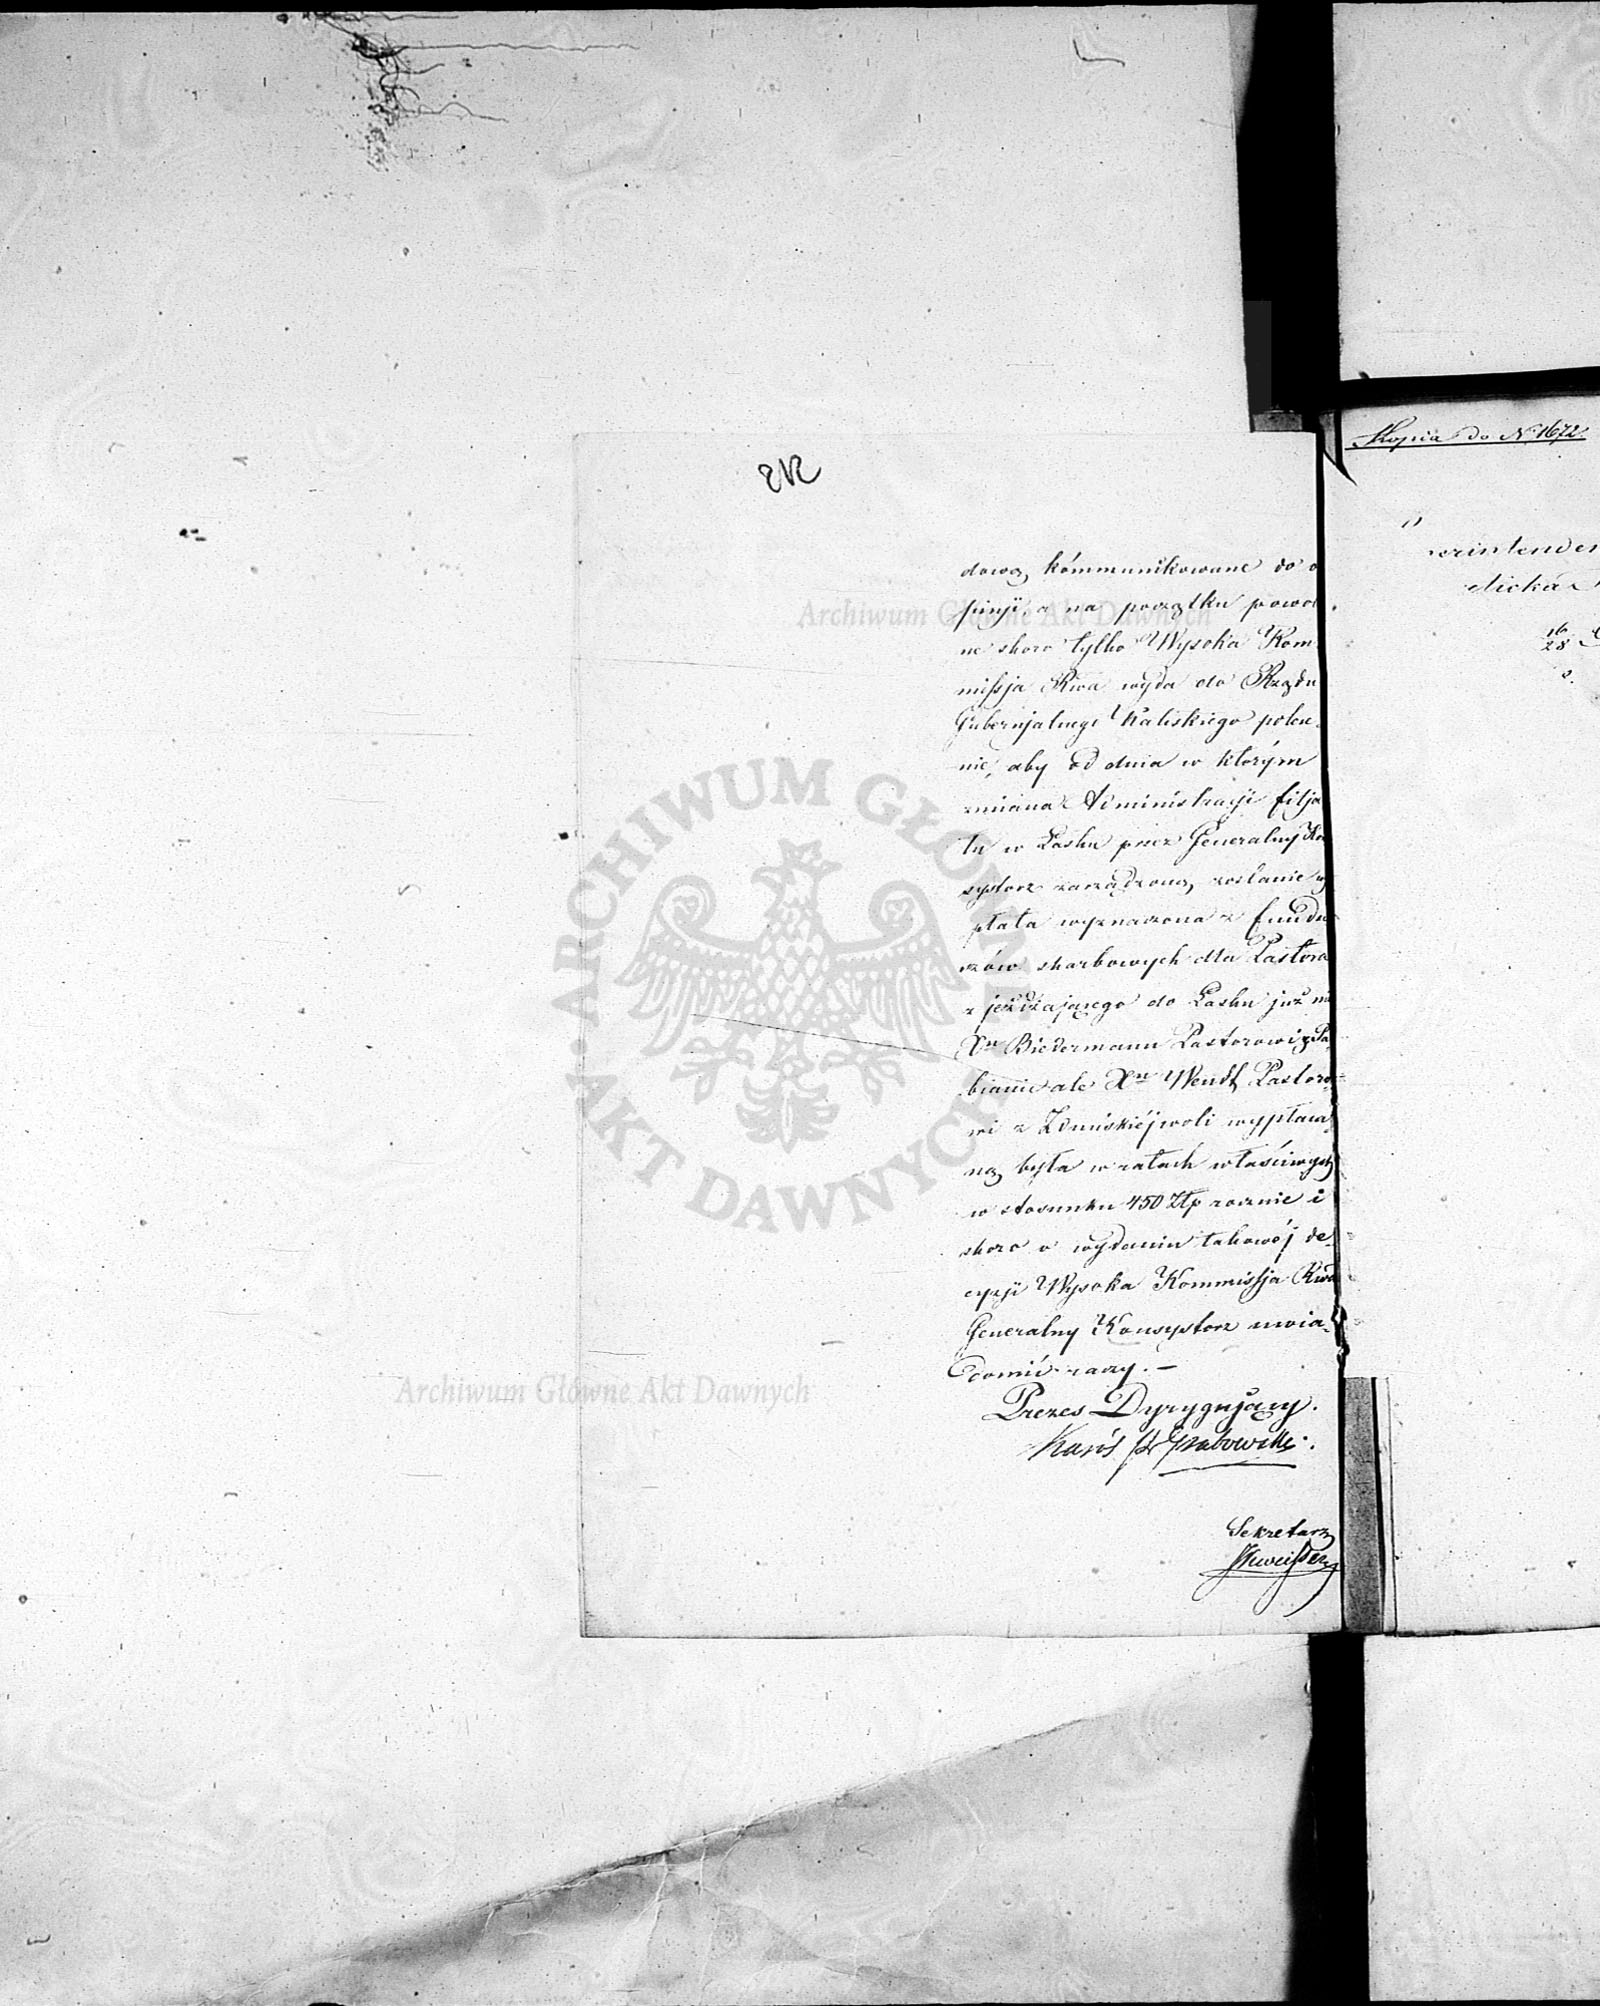 dową kómmunikowane do o
pinji, a na początku powoła
ne skoro tylko Wysoka Kom
missja Rwa wyda do Rządu
Gubernjalnego Kaliskiego polece
nie, aby od dnia w którym
zmiana Administracji filja
łu w Łasku przez Generalny Kon
systorz zarządzoną zostanie
płata wyznaczona z fundu
szów skarbowych dla Pastora
zjeżdżającego do Łasku już nie
Xu Biedermann Pastorowi z Pa
bianic ale Xu Wendt Pastoro
wi z Zduńskiéjwoli wypłaca
ną była w ratach właściwych
w stosunku 450 Złp rocznie i
skoro o wydaniu takowéj de
cyzji Wysoka Kommissja Rwa
Generalny Konsystorz uwia
domić raczy. —
Prezes Dyrygujący.
Karól Grabowski.
Sekretarz
Kopia do N 1672.
erintenden
elicka
16
28
ARCHIWUM GŁÓWNE AKT DAWNYCH
Archiwum Główne Akt Dawnych
Archiwum Główne Akt Dawnych